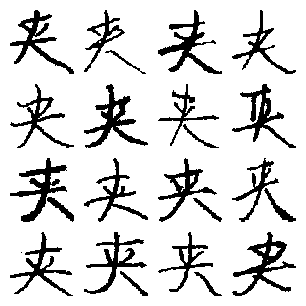 夹夹夹夹
夹夹夹夹
夹夹夹夹
夹夹夹夹